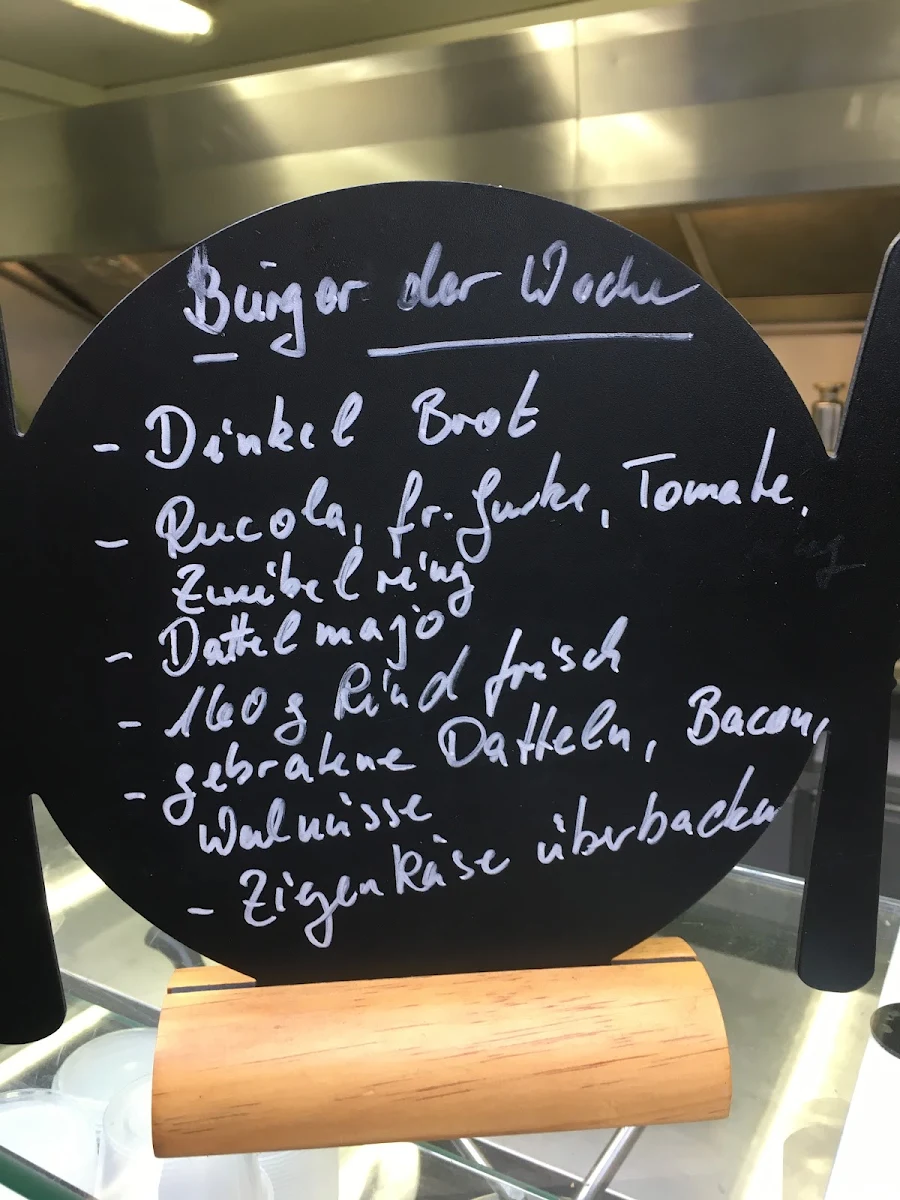 Bürger der Woche
- Dinkel Brot
- Rucola, fr. Gurke, Tomate,
Zwiebelring
- Dattelmajo
- 160g Rind frisch
- gebratene Datteln, Bacon,
Walnüsse
- Ziegenkäse überbacken